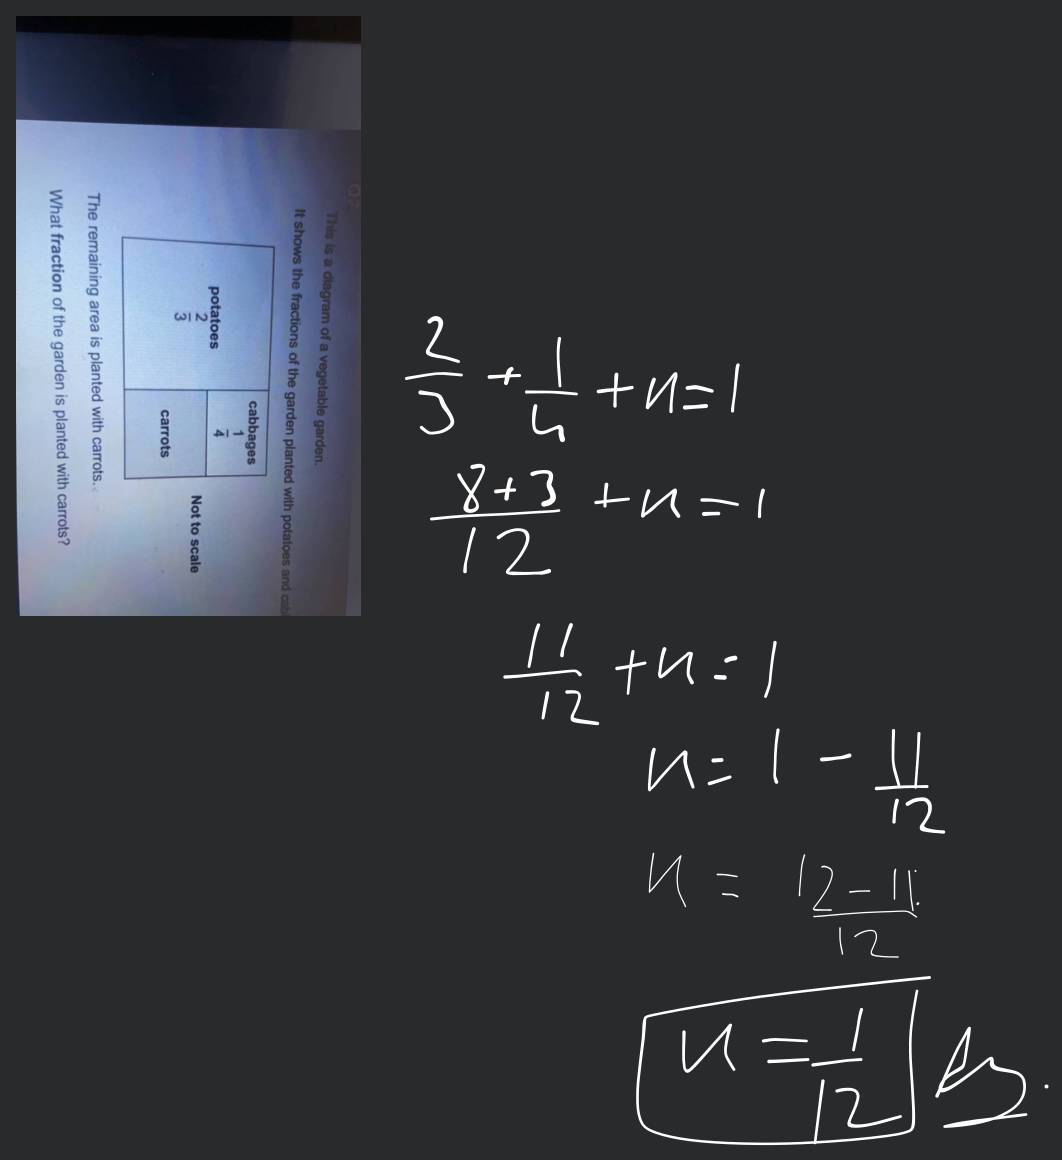 Q2
This is a diagram of a vegetable garden.
It shows the fractions of the garden planted with potatoes and
potatoes
2/3
cabbages
1/4
carrots
Not to scale
The remaining area is planted with carrots.
What fraction of the garden is planted with carrots?
2/3 + 1/4 + x = 1
8+3/12 + x = 1
11/12 + x = 1
x = 1 - 11/12
x = 12-11/12
x = 1/12